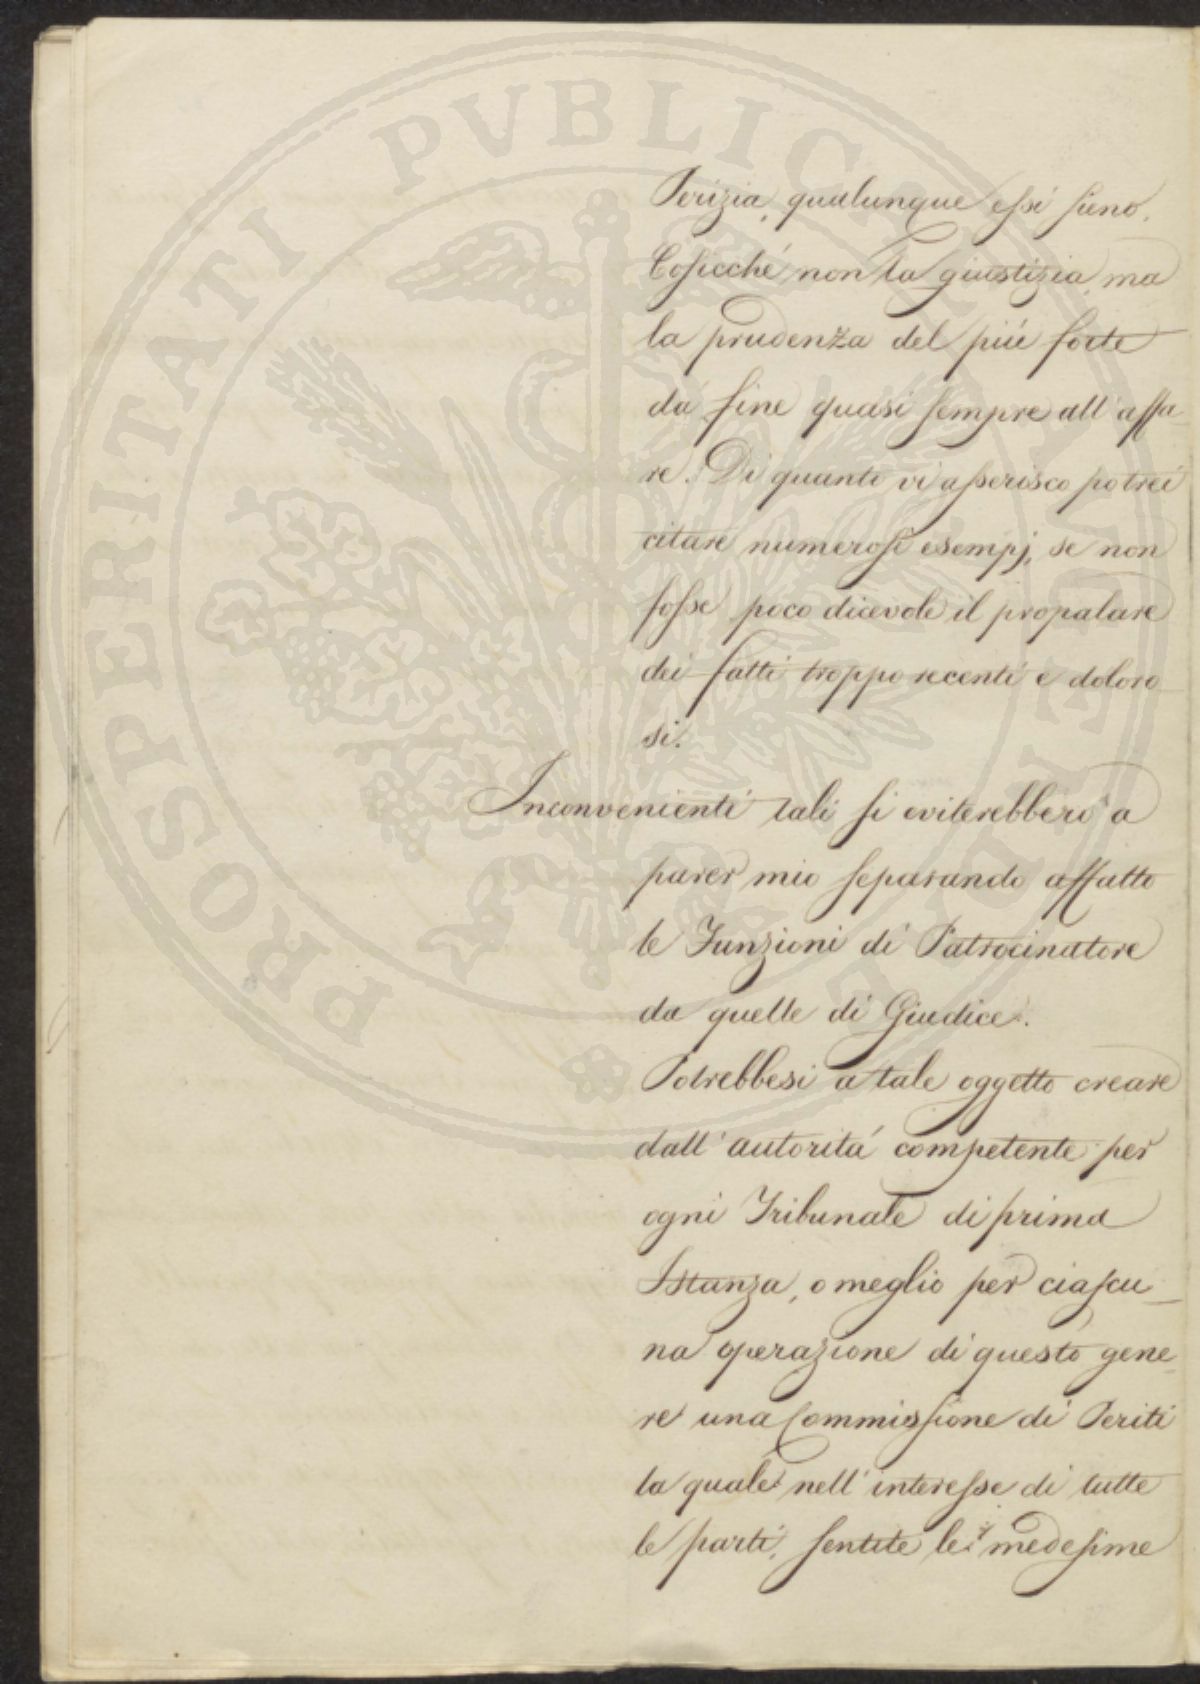 Perizia, qualunque essi sieno.
Cosicché non la giustizia, ma
la prudenza del più forte
dà fine quasi sempre all'affa
re. Di quanto vi asserisco potrei
citare numerosi esempj, se non
fosse poco dicevole il propalare
dei fatti troppo recenti e doloro
si.
Inconvenienti tali si eviterebbero a
parer mio separando affatto
le Funzioni di Patrocinatore
da quelle di Giudice.
Potrebbesi a tale oggetto creare
dall'autorità competente per
ogni Tribunale di prima
Istanza, o meglio per ciascu_
na operazione di questo gene_
re una Commissione di Periti
la quale nell'interesse di tutte
le parti, sentite le medesime
PROSPERITATI PVBLICAE